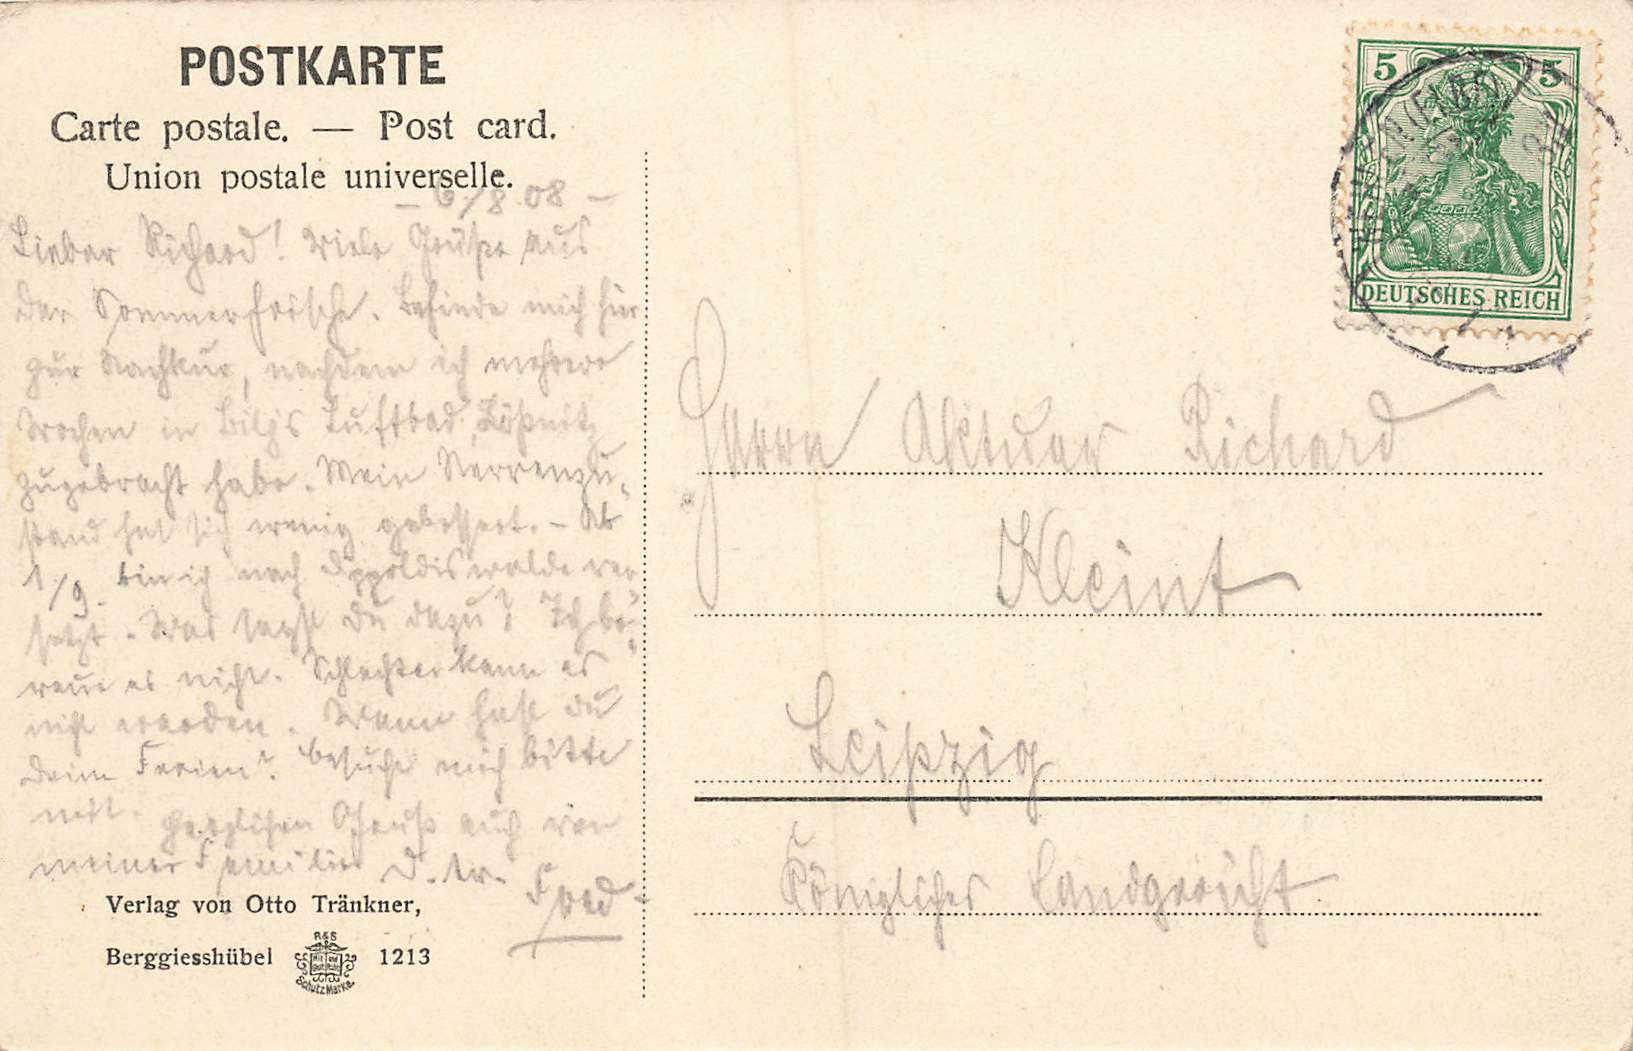 POSTKARTE
Carte postale. — Post card.
Union postale universelle.
– 6./8. 08 –
Lieber Richard! Viele Grüße aus
der Sommerfrische. Befinde mich hier
zur Nachkur, nachdem ich mehrere
Wochen in Bilz's Luftbad, Lößnitz
zugebracht habe. Mein Nervenzu-
stand hat sich wenig gebessert. – Ab
1/9. bin ich nach Dippoldiswalde ver-
setzt. Was sagst Du dazu? Ich be-
reue es nicht. Schlechter kann es
nicht werden. Wann hast Du
Deine Ferien? Besuche mich bitte
mal. Herzlichen Gruß auch von
meiner Familie D. tr.
Fred
Verlag von Otto Tränkner,
Berggiesshübel 1213
R&S
Schutz Marke.
5 5
DEUTSCHES REICH
Herrn Aktuar Richard
Kleint
Leipzig
Königliches Landgericht